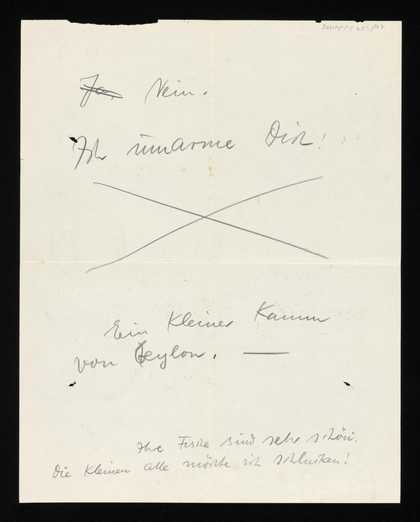 Ja. Nein.
Ich umarme Dich!
Ein kleiner Kamm
von Ceylon. —
Ihre Fische sind sehr schön.
Die kleinen alle möchte ich schlucken!